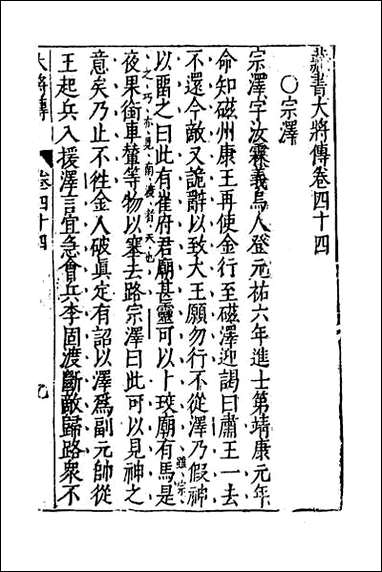 藏書大將傳卷四十四
〇宗澤
宗澤字汝霖義烏人登元祐六年進士第靖康元年
命知磁州康王再使金行至磁澤迎謁曰肅王一去
不還今敵又詭辭以致大王願勿行不從澤乃假神
以留之曰此有崔府君廟甚靈可以卜珓廟有馬是
雖宗之巧亦見南渡者天也
夜果銜車輦等物以塞去路宗澤曰此可以見神之
意矣乃止不徃金人破眞定有詔以澤爲副元帥從
王起兵入援澤言宜急會兵李固渡斷敵歸路衆不
大將傳
卷四十四
九